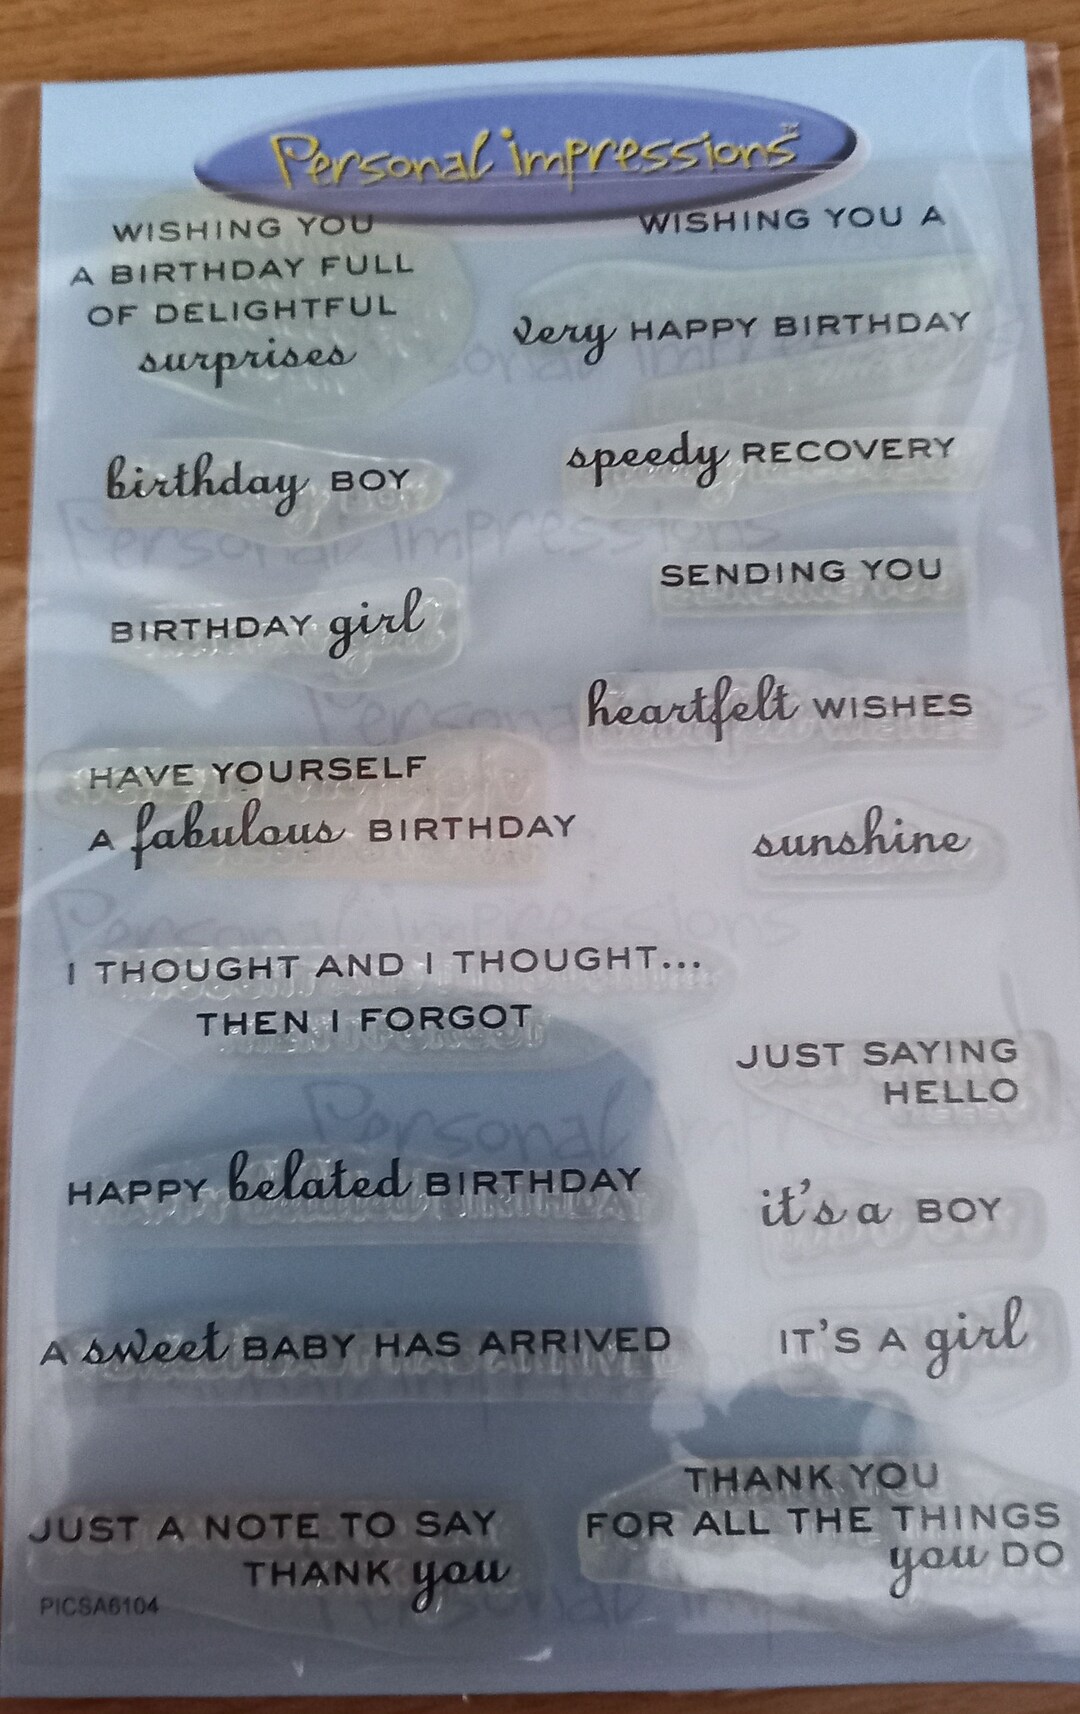 Personal impressions™
WISHING YOU
A BIRTHDAY FULL
OF DELIGHTFUL
surprises
WISHING YOU A
very HAPPY BIRTHDAY
birthday BOY
speedy RECOVERY
BIRTHDAY girl
SENDING YOU
heartfelt WISHES
HAVE YOURSELF
A fabulous BIRTHDAY
sunshine
I THOUGHT AND I THOUGHT...
THEN I FORGOT
JUST SAYING
HELLO
HAPPY belated BIRTHDAY
it's a BOY
A sweet BABY HAS ARRIVED
IT'S A girl
JUST A NOTE TO SAY
THANK you
THANK YOU
FOR ALL THE THINGS
you DO
PICSA6104
Personal impressions
Personal
Personal impressions
Personal
Personal